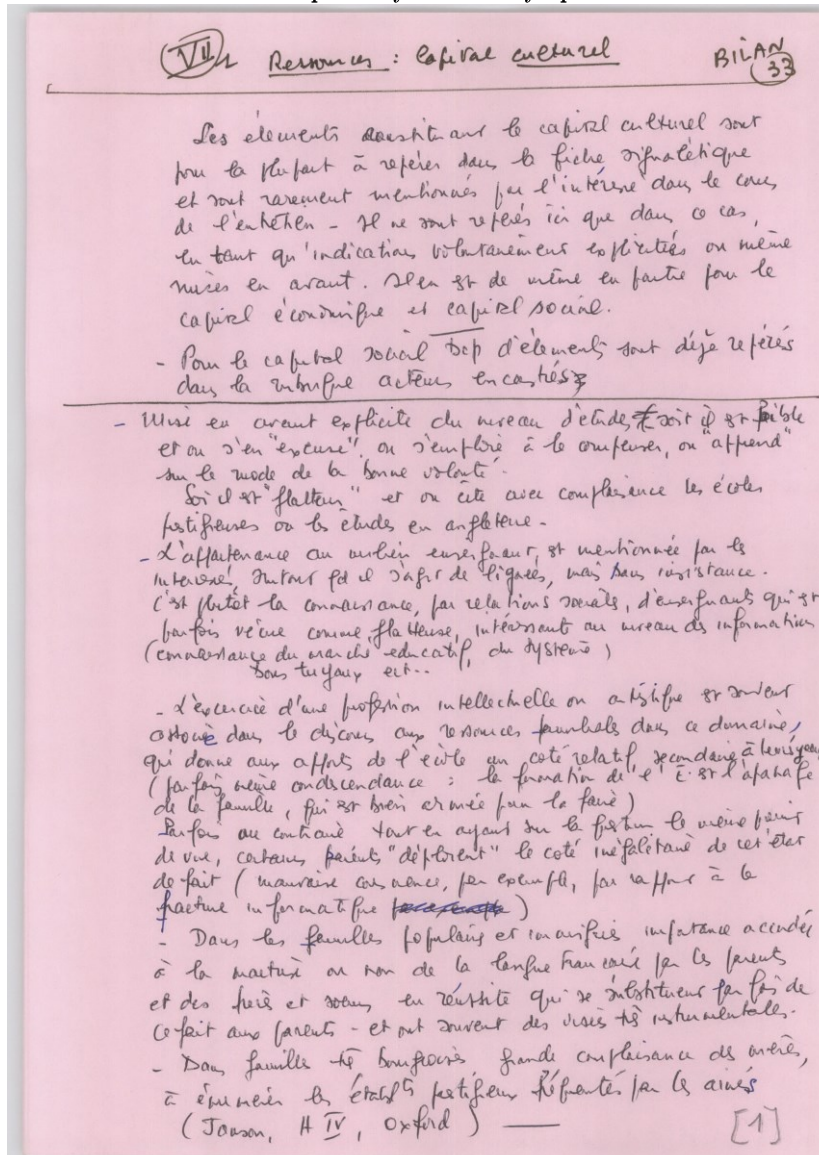 VII Ressources : Capital culturel BILAN
33
Les éléments constituant le capital culturel sont
pour la plupart à repérer dans la fiche signalétique
et sont rarement mentionnés par l'intéressé dans le cours
de l'entretien - Il ne sont repérés ici que dans ce cas,
en tant qu'indications volontairement explicitées ou même
mises en avant. Il en est de même en partie pour le
capital économique et capital social.
- Pour le capital social bcp d'éléments sont déjà repérés
dans la rubrique acteurs encastrés
- Mise en avant explicite du niveau d'études soit il est faible
et on s'en "excuse", on s'emploie à le compenser, on "apprend"
sur le mode de la bonne volonté.
Soit il est "flatteur" et on cite avec complaisance les écoles
prestigieuses ou les études en angleterre -
- L'appartenance au milieu enseignant, est mentionnée par les
intéressés, surtout qd il s'agit de lignées, mais sans insistance.
C'est plutôt la connaissance, par relations sociales, d'enseignants qui est
parfois vécue comme flatteuse, intéressant au niveau des informations
(connaissance du marché éducatif, du système)
bons tuyaux ect..
- L'exercice d'une profession intellectuelle ou artistique est souvent
associée dans le discours aux ressources familiales dans ce domaine,
qui donne aux apports de l'école un coté relatif, secondaire à leurs yeux
(parfois même condescendance : la formation de l'E est l'apanage
de la famille, qui est bien armée pour la faire)
Parfois au contraire tout en ayant sur la question le même point
de vue, certains parents "déplorent" le coté inégalitaire de cet état
de fait (mauvaise conscience, par exemple, par rapport à la
fracture informatique)
- Dans les familles populaires et immigrées importance accordée
à la maitrise ou non de la langue francaise par les parents
et des frères et soeurs en réussite qui se substituent parfois de
ce fait aux parents - et ont souvent des visées très instrumentales.
- Dans familles très bourgeoises grande complaisance des mères,
à énumérer les établts prestigieux fréquentés par les ainés
(Janson, H IV, Oxford) —— [1]